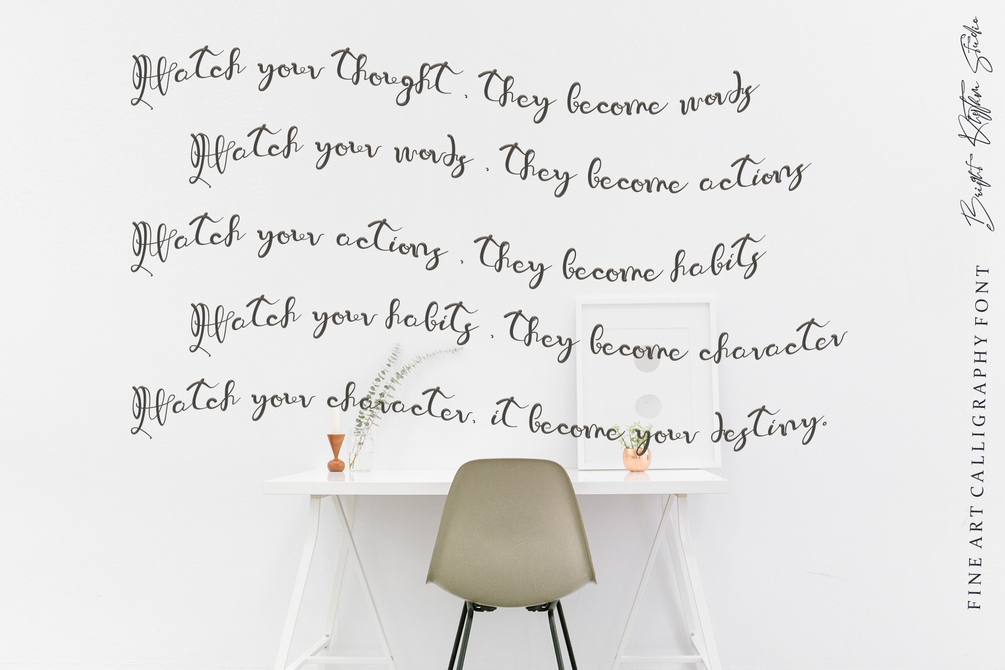 Watch your thought , They become words
Watch your words , They become actions
Watch your actions , They become habits
Watch your habits , They become character
Watch your character, it become your destiny.
FINE ART CALLIGRAPHY FONT
Bright Rhythm Studio